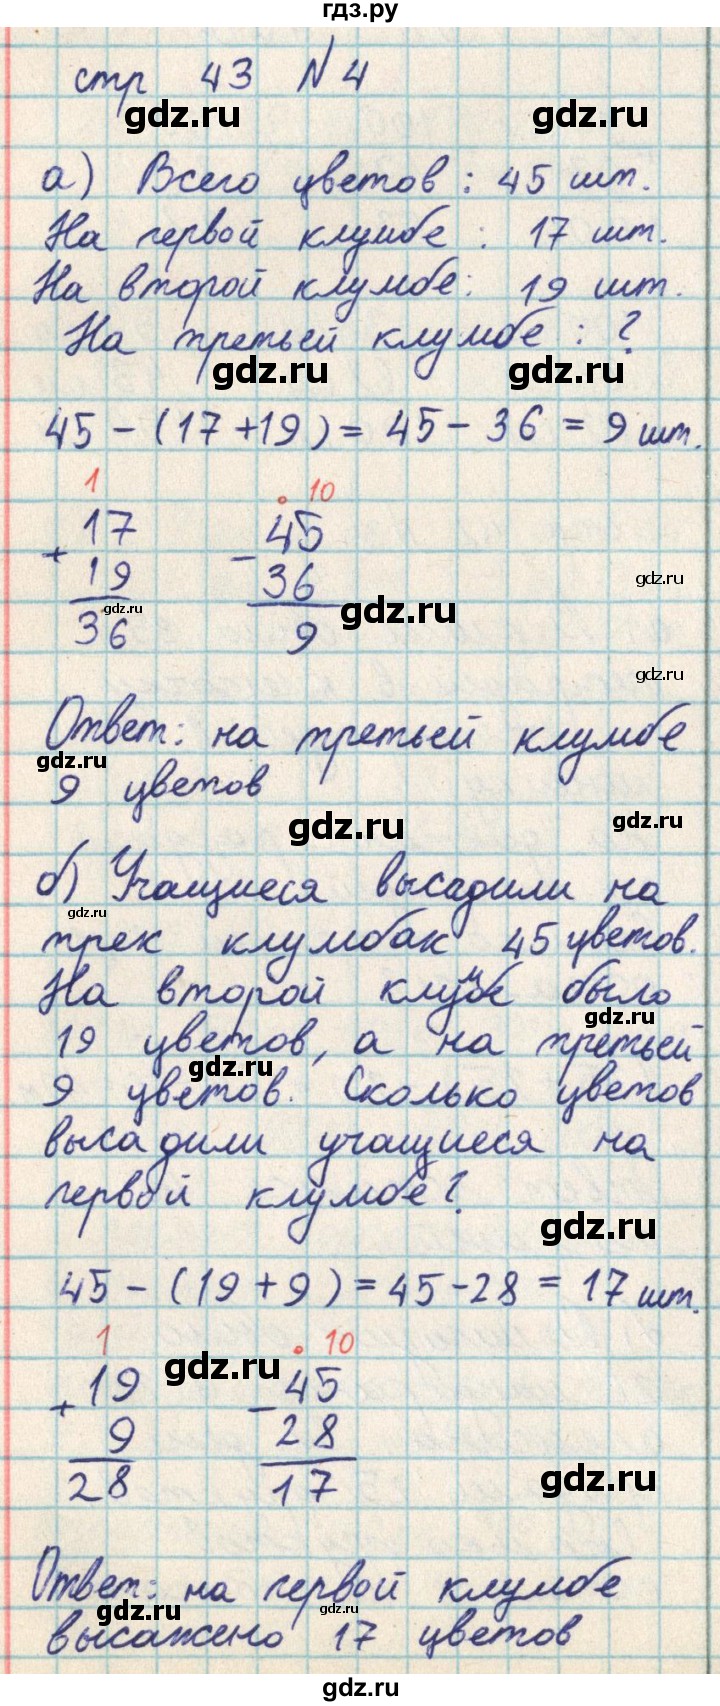 гдз.ру
стр 43 № 4
gdz.ru gdz.ru
а) Всего цветов: 45 шт.
На первой клумбе: 17 шт.
На второй клумбе: 19 шт.
На третьей клумбе: ?
gdz.ru gdz.ru
45 - (17 + 19) = 45 - 36 = 9 шт.
1 . 10
+ 17 - 45
19 36 gdz.ru
36 gdz.ru 9 gdz.ru
gdz.ru
Ответ: на третьей клумбе
gdz.ru
9 цветов
gdz.ru gdz.ru
б) Учащиеся высадили на
gdz.ru
трек клумбак 45 цветов.
На второй клумбе было
gdz.ru
19 цветов, а на третьей
gdz.ru
9 цветов. Сколько цветов
высадили учащиеся на
первой клумбе?
gdz.ru
45 - (19 + 9) = 45 - 28 = 17 шт.
1 . 10
gdz.ru
+ 19 - 45
9 28
28 17 gdz.ru
Ответ: на первой клумбе
gdz.ru gdz.ru
высажено 17 цветов
gdz.ru